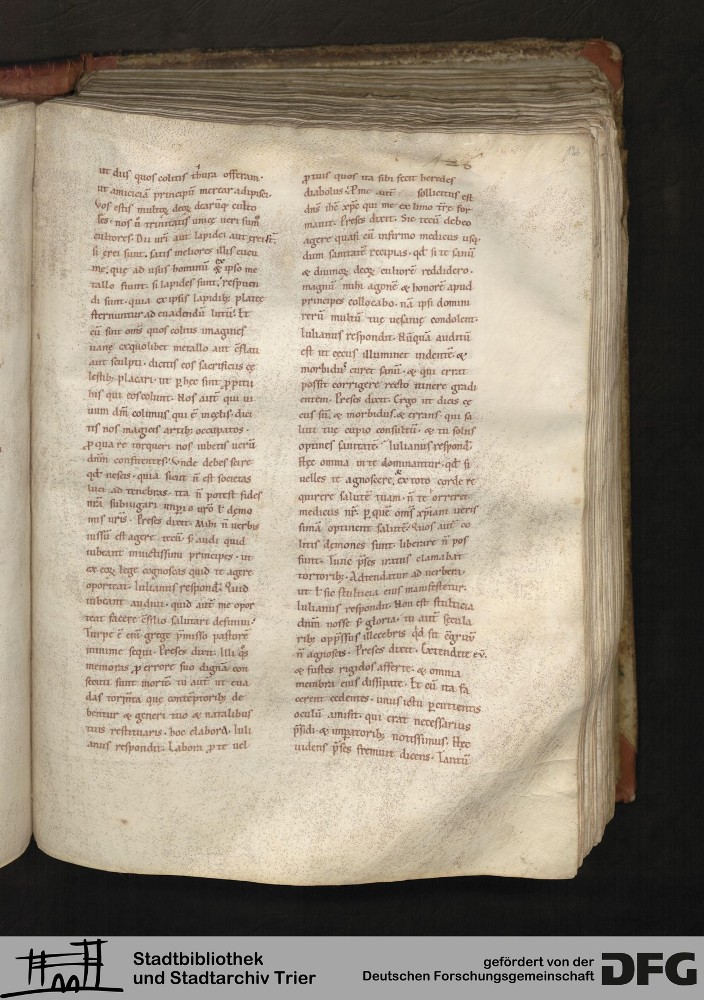 126
ut diis quos colitis thura offeram·
ut amiciciā principū merear adipisci·
Vos estis multoꝝ deoꝝ dearūꝙ culto
res· nos ū trinitatis uniꝰ ueri sumꝰ
cultores· Dii urī aut lapidei aut erei sī·
si erei sunt· satis meliores illis
mę· que ad usus hominū ex ipso me
tallo fiunt· si lapides sunt· respuen
di sunt· quia ex ipsis lapidibꝫ plateę
sternuntur ad euadendū lutū· Et
cū sint om̄s quos colitis imagines
uanę ex quolibet metallo aut c̄flati
aut sculpti· dicitis eos sacrificiis cę
lestibꝫ placari· ut ꝑ hęc sint ꝓpitii
his qui eos colunt· Nos aut̄ qui ui
uum dm̄ colimus qui ē in cęlis· dici
tis nos magicis artibꝫ occupatos·
ꝓ qua re torqueri nos iubetis uerū
dn̄m confitentes· Unde debes scire
qd̄ nescis· quia sicut n̄ est societas
luci ad tenebras· ita n̄ potest fides
nr̄a subiugari imꝑio uro ł demo
niis uris· Preses dixit· Mihi n̄ uerbis
iussū est agere tecū· s̄ audi quid
iubeant inuictissimi principes· ut
ex eoꝝ lege cognoscas quid te agere
oporteat· Iulianus respond̄· Quid
iubeant audiui· quid aut̄ me opor
teat facere c̄silio salutari definiui·
Turpe ē enī grege p̄misso pastorē
minime sequi· Preses dixit· Illi q̄s
memoras ꝓ errore suo dignā con
secuti sunt mortē· tu aut̄ ut eua
das torm̄ta que contēptoribꝫ de
bentur & generi tuo & natalibus
tuis restituaris· hoc elabora· Iuli
anus respondit· Labora ꝓ te uel
ꝓ tuis quos ita sibi fecit heredes
diabolus· P̱ me aut̄ sollicitus est
dn̄s ihc̄ xp̄c qui me ex limo tr̄e for
mauit· Preses dixit· Sic tecū debeo
agere quasi cū infirmo medicus usꝙ
dum sanitatē recipias· qd̄ si te sanū
& diuinoꝝ deoꝝ cultorē reddidero·
magnū mihi agonē & honorē apud
principes collocabo· nā ipsi domini
rerū multū tuę uesanię condolent·
Iulianus respondit· Nūquā auditū
est ut cecus illuminet uidentē· &
morbidus curet sanū· & qui errat
possit corrigere recto itinere gradi
entem· Preses dixit· Ergo ut dicis cę
cus sū· & morbidus· & errans· qui sa
luti tuę cupio consultū· & tu solus
optines sanitatē· Iulianus respond̄·
Hęc omnia in te dominantur· qd̄ si
uelles te agnoscere· & ex toto corde re
quirere salutē tuam· n̄ te orreret
medicus nr̄· ꝑ quē om̄s xp̄iani ueris
simā optinent salutē· Quos aut̄ co
litis demones sunt· liberare n̄ pos
sunt· Tunc p̄ses iratus clamabat
tortoribꝫ· Adtendatur ad uerbera·
ut ł sic stulticia eius manifestetur·
Iulianus respondit· Non est stulticia
dn̄m nosse s̄ gloria· tu aut̄ secula
ribꝫ opp̄ssus illecebris qd̄ sit c̄gruū
n̄ agnoscis· Preses dixit· Extendite eū·
& fustes rigidos afferte· & omnia
membra eius dissipate· Et cū ita fa
cerent cędentes· unus ictū ꝑcutientis
oculū amisit· qui erat necessarius
p̄sidi· & imꝑatoribꝫ notissimus· Hęc
uidens p̄ses fremuit dicens· Tantū
Stadtbibliothek
und Stadtarchiv Trier
gefördert von der
Deutschen Forschungsgemeinschaft
DFG